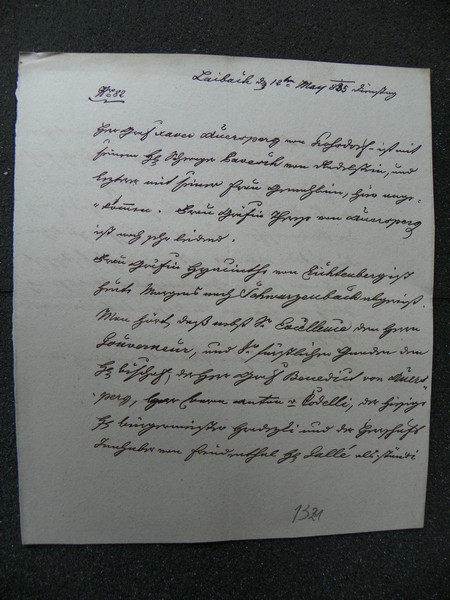 Laibach d 12ten May 835 Dienstag
Nro 82
Herr Graf Xaver Auersperg von ist mit
seinem H: Schwager Baron von und
letzter mit seiner Frau Gemahlin, hier ange-
kommen. Frau Gräfin Therese von Auersperg
ist noch sehr leidend.
Frau Gräfin Hyacinthe von Lichtenberg ist
heute Morgens nach Schwarzenbach abgereist.
Man hört, daß nebst Sr Excellenz dem Herrn
Gouverneur, und Sr fürstlichen Gnaden dem
H: Bischof, der Herr Graf Benedict von Auers-
perg, Herr Baron Anton v Codelli, der hiesige
H: Bürgermeister Hradezki und der Herrschafts
Inhaber von Freudenthal H: Gallé als ständi
1321